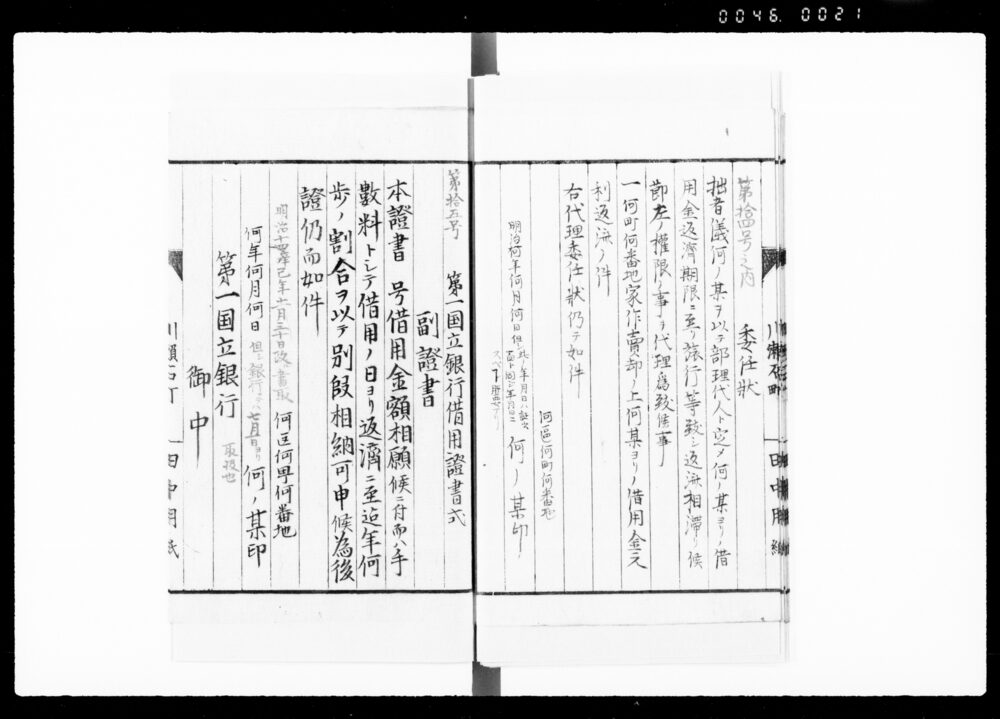 0046.0021
第拾四号之内
委任状
拙者儀何ノ某ヲ以テ部理代人ト定メ何ノ某ヨリノ借
用金返濟期限ニ至リ旅行等致シ返済相滞リ候
節左ノ權限ノ事ヲ代理為致候事
一何町何番地家作賣却ノ上何某ヨリノ借用金元
利返済ノ件
右代理委任状仍テ如件
何區何町何番地
明治何年何月何日 何ノ某印
川瀬石町 田中用紙
第拾五号 第一国立銀行借用證書式
副證書
本證書 号借用金額相願候ニ付而ハ手
數料トシテ借用ノ日ヨリ返濟ニ至迄年何
歩ノ割合ヲ以テ別段相納可申候為後
證仍而如件
明治十四年 何區何町何番地
何年何月何日 何ノ某印
第一国立銀行
御中
川瀬石町 田中用紙